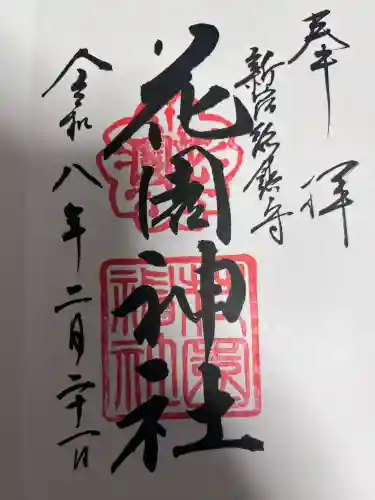 奉拝
新宿総鎮守
花園神社
令和八年二月二十一日
花園神社